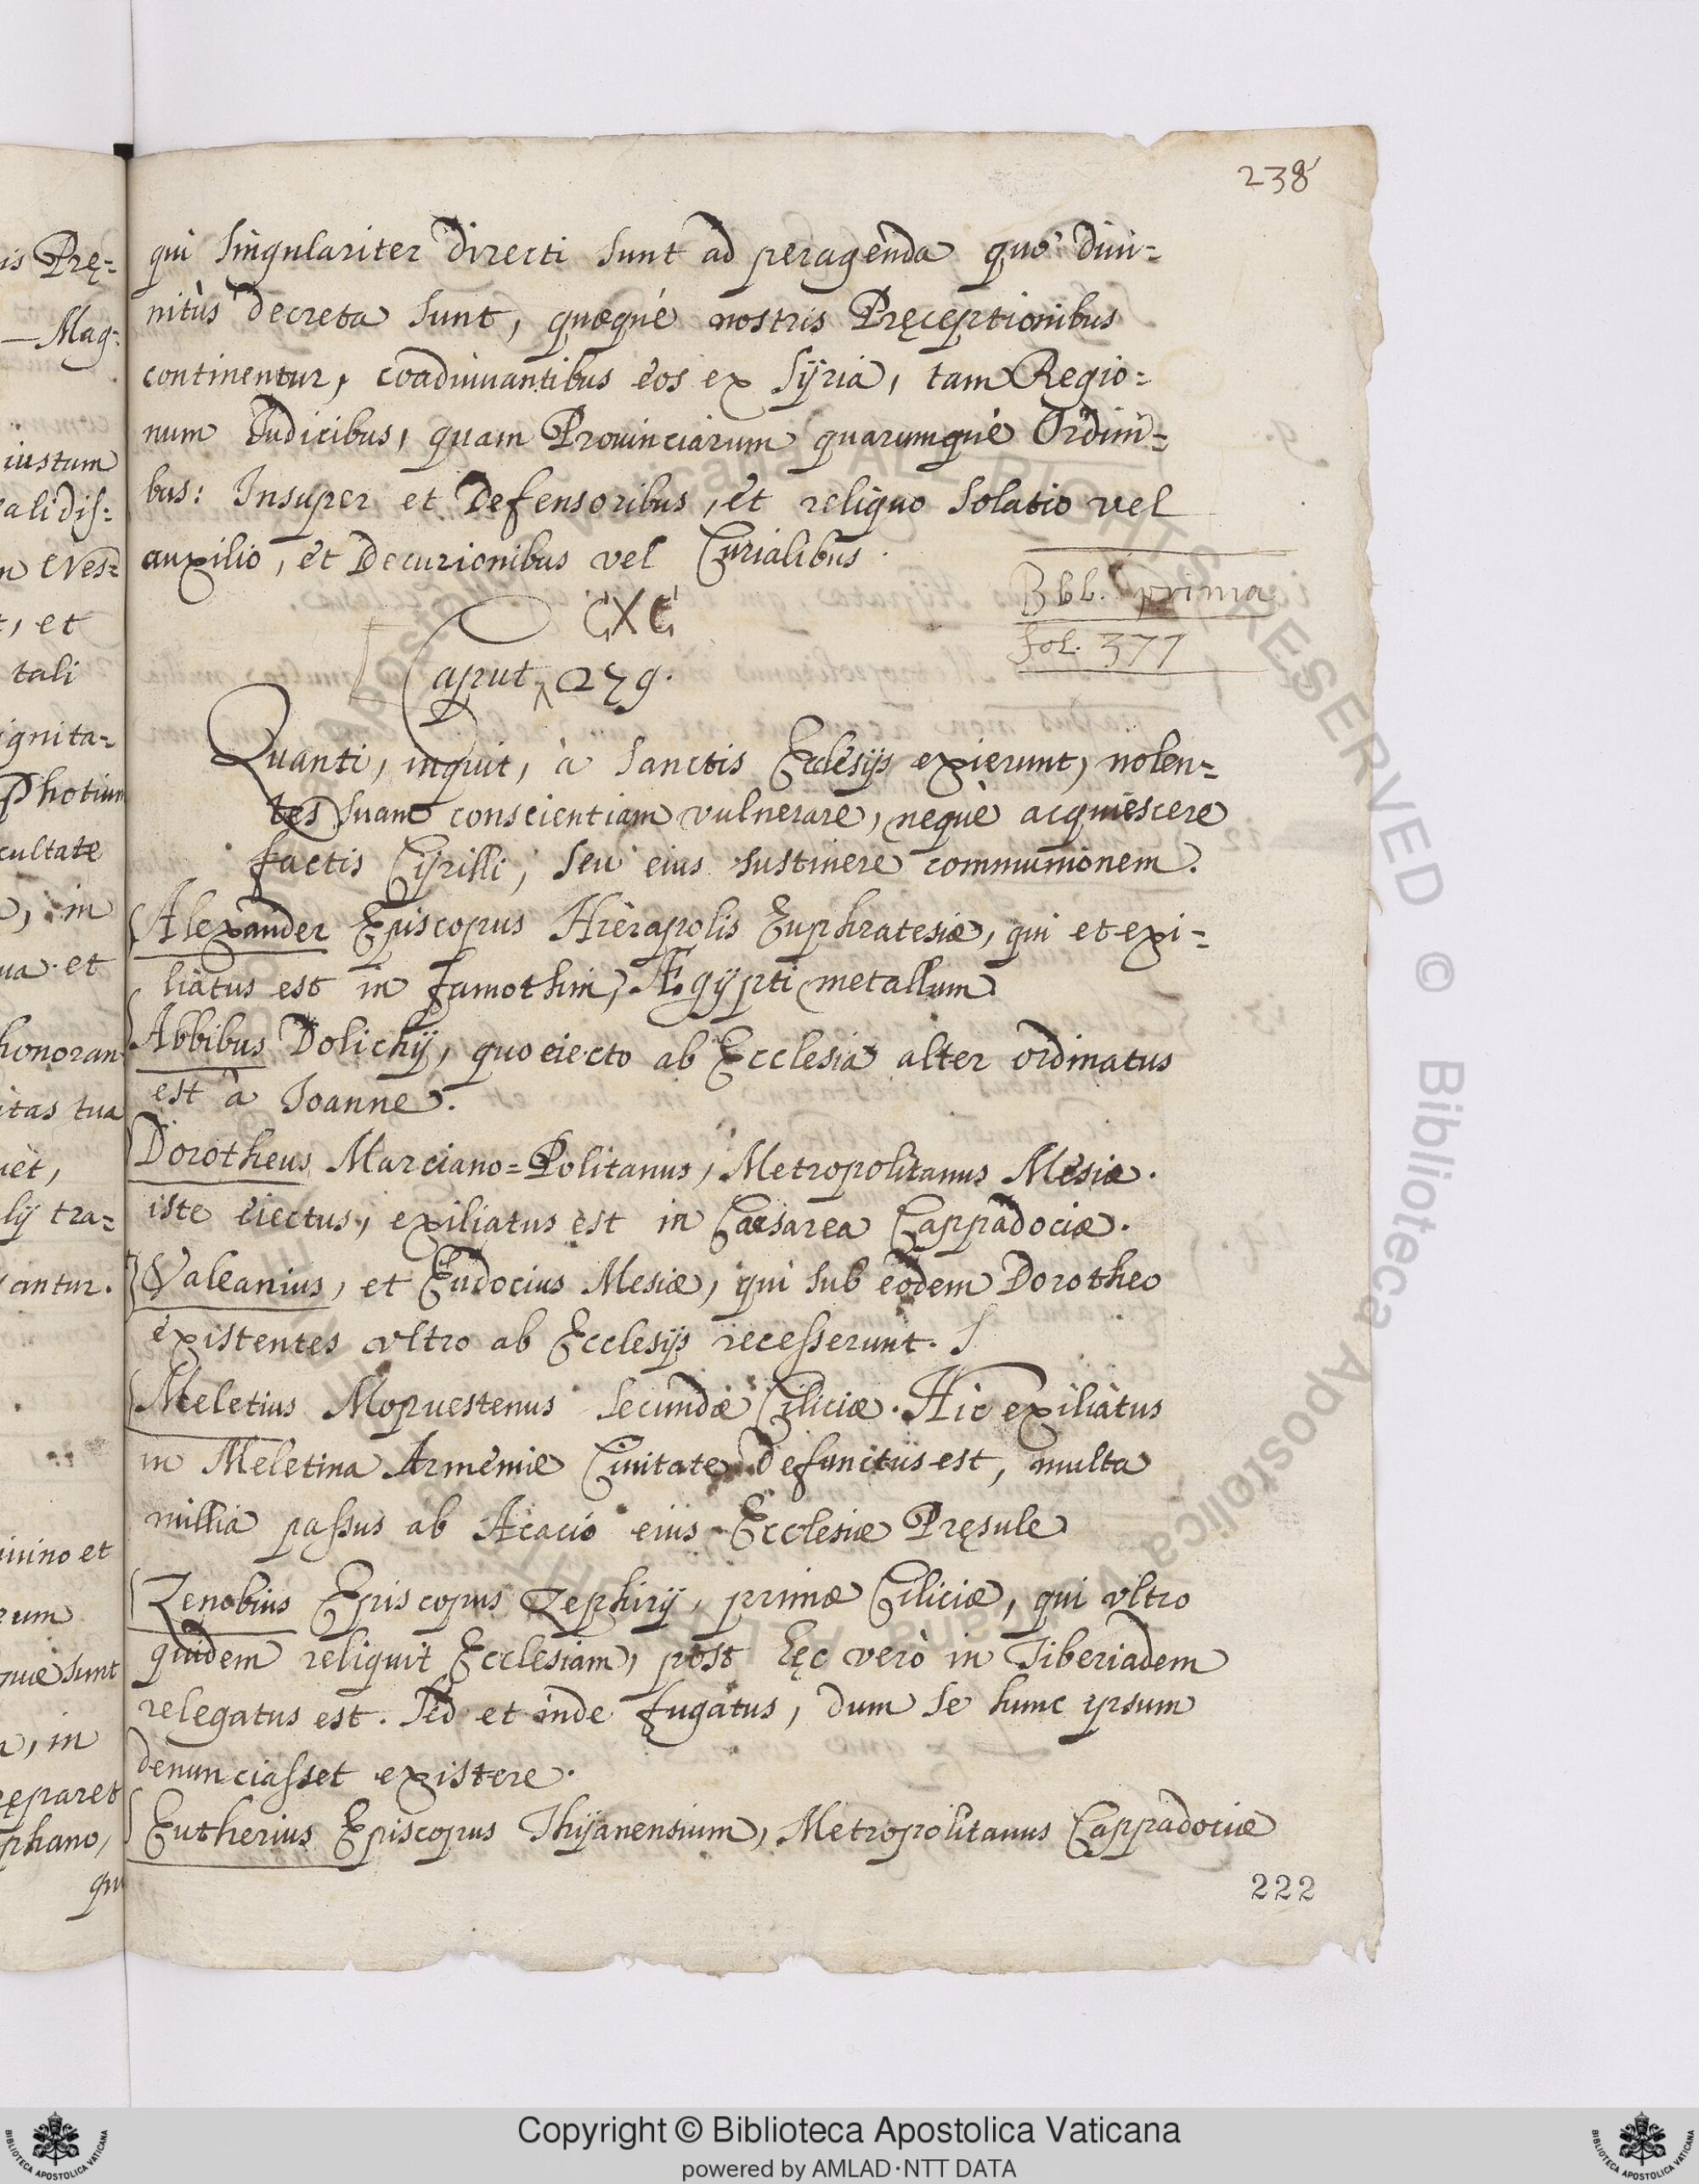 238
qui singulariter directi sunt ad peragenda quæ diui=
nitùs decreta sunt, quæquè nostris Pręceptionibus
continentur, coadiuuantibus eos ex Syria, tam Regio=
num Iudicibus, quam Prouinciarum quarumquè Ordini=
bus: Insuper et Defensoribus, et reliquo solatio vel
auxilio, et Decurionibus vel Curialibus.
CXC
Bbl. prima
fol. 377
Caput 279.
Quanti, inquit, à Sanctis Ecclesijs exierunt, nolen=
tes suam conscientiam vulnerare, nequè acquiescere
factis Cyrilli, seu eius sustinere communionem.
Alexander Episcopus Hierapolis Euphratesiæ, qui et exi=
liatus est in famothim, Ægypti metallum
Abbibus Dolichij, quo eiecto ab Ecclesia alter ordinatus
est à Joanne.
Dorotheus Marciano=Politanus, Metropolitanus Mesiæ.
iste eiectus, exiliatus est in Caesarea Cappadociæ.
Valeanius, et Eudocius Mesiæ, qui sub eodem Dorotheo
existentes vltro ab Ecclesijs recesserunt.
Meletius Mopuestenus secundæ Ciliciæ. Hic exiliatus
in Meletina Armeniæ Ciuitate defunctus est, multa
millia passus ab Acacio eius Ecclesiæ Pręsule
Zenobius Episcopus Zephirij, primæ Ciliciæ, qui vltro
quidem reliquit Ecclesiam, post hęc verò in Tiberiadem
relegatus est. Sed et inde fugatus, dum se hunc ipsum
denunciasset existere.
Eutherius Episcopus Thyanensium, Metropolitanus Cappadociæ
222
is Prę=
Mag=
iustum
alidis=
, et
tali
ignita=
Photium
cultate
, in
ua et
honoran
itas tua
lij tra=
antur.
iuino et
rum
quæ sunt
, in
ręparet
phano,
qui
© Biblioteca Apostolica Vaticana ALL RIGHTS RESERVED
Copyright © Biblioteca Apostolica Vaticana
powered by AMLAD·NTT DATA
BIBLIOTECA APOSTOLICA VATICANA
BIBLIOTECA APOSTOLICA VATICANA